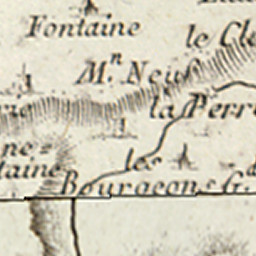 Fontaine
le Cle
M.n Neuf
la Perr
ne=
taine
les
Bourgeons G.d